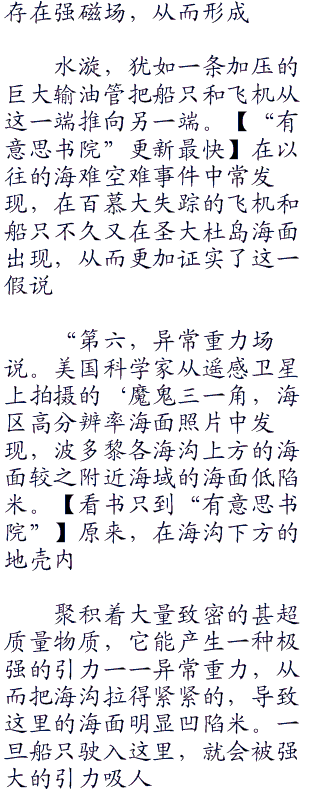 存在强磁场，从而形成
水漩，犹如一条加压的
巨大输油管把船只和飞机从
这一端推向另一端。【“有
意思书院”更新最快】在以
往的海难空难事件中常发
现，在百慕大失踪的飞机和
船只不久又在圣大杜岛海面
出现，从而更加证实了这一
假说
“第六，异常重力场
说。美国科学家从遥感卫星
上拍摄的‘魔鬼三一角，海
区高分辨率海面照片中发
现，波多黎各海沟上方的海
面较之附近海域的海面低陷
米。【看书只到“有意思书
院”】原来，在海沟下方的
地壳内
聚积着大量致密的甚超
质量物质，它能产生一种极
强的引力一一异常重力，从
而把海沟拉得紧紧的，导致
这里的海面明显凹陷米。一
旦船只驶入这里，就会被强
大的引力吸人